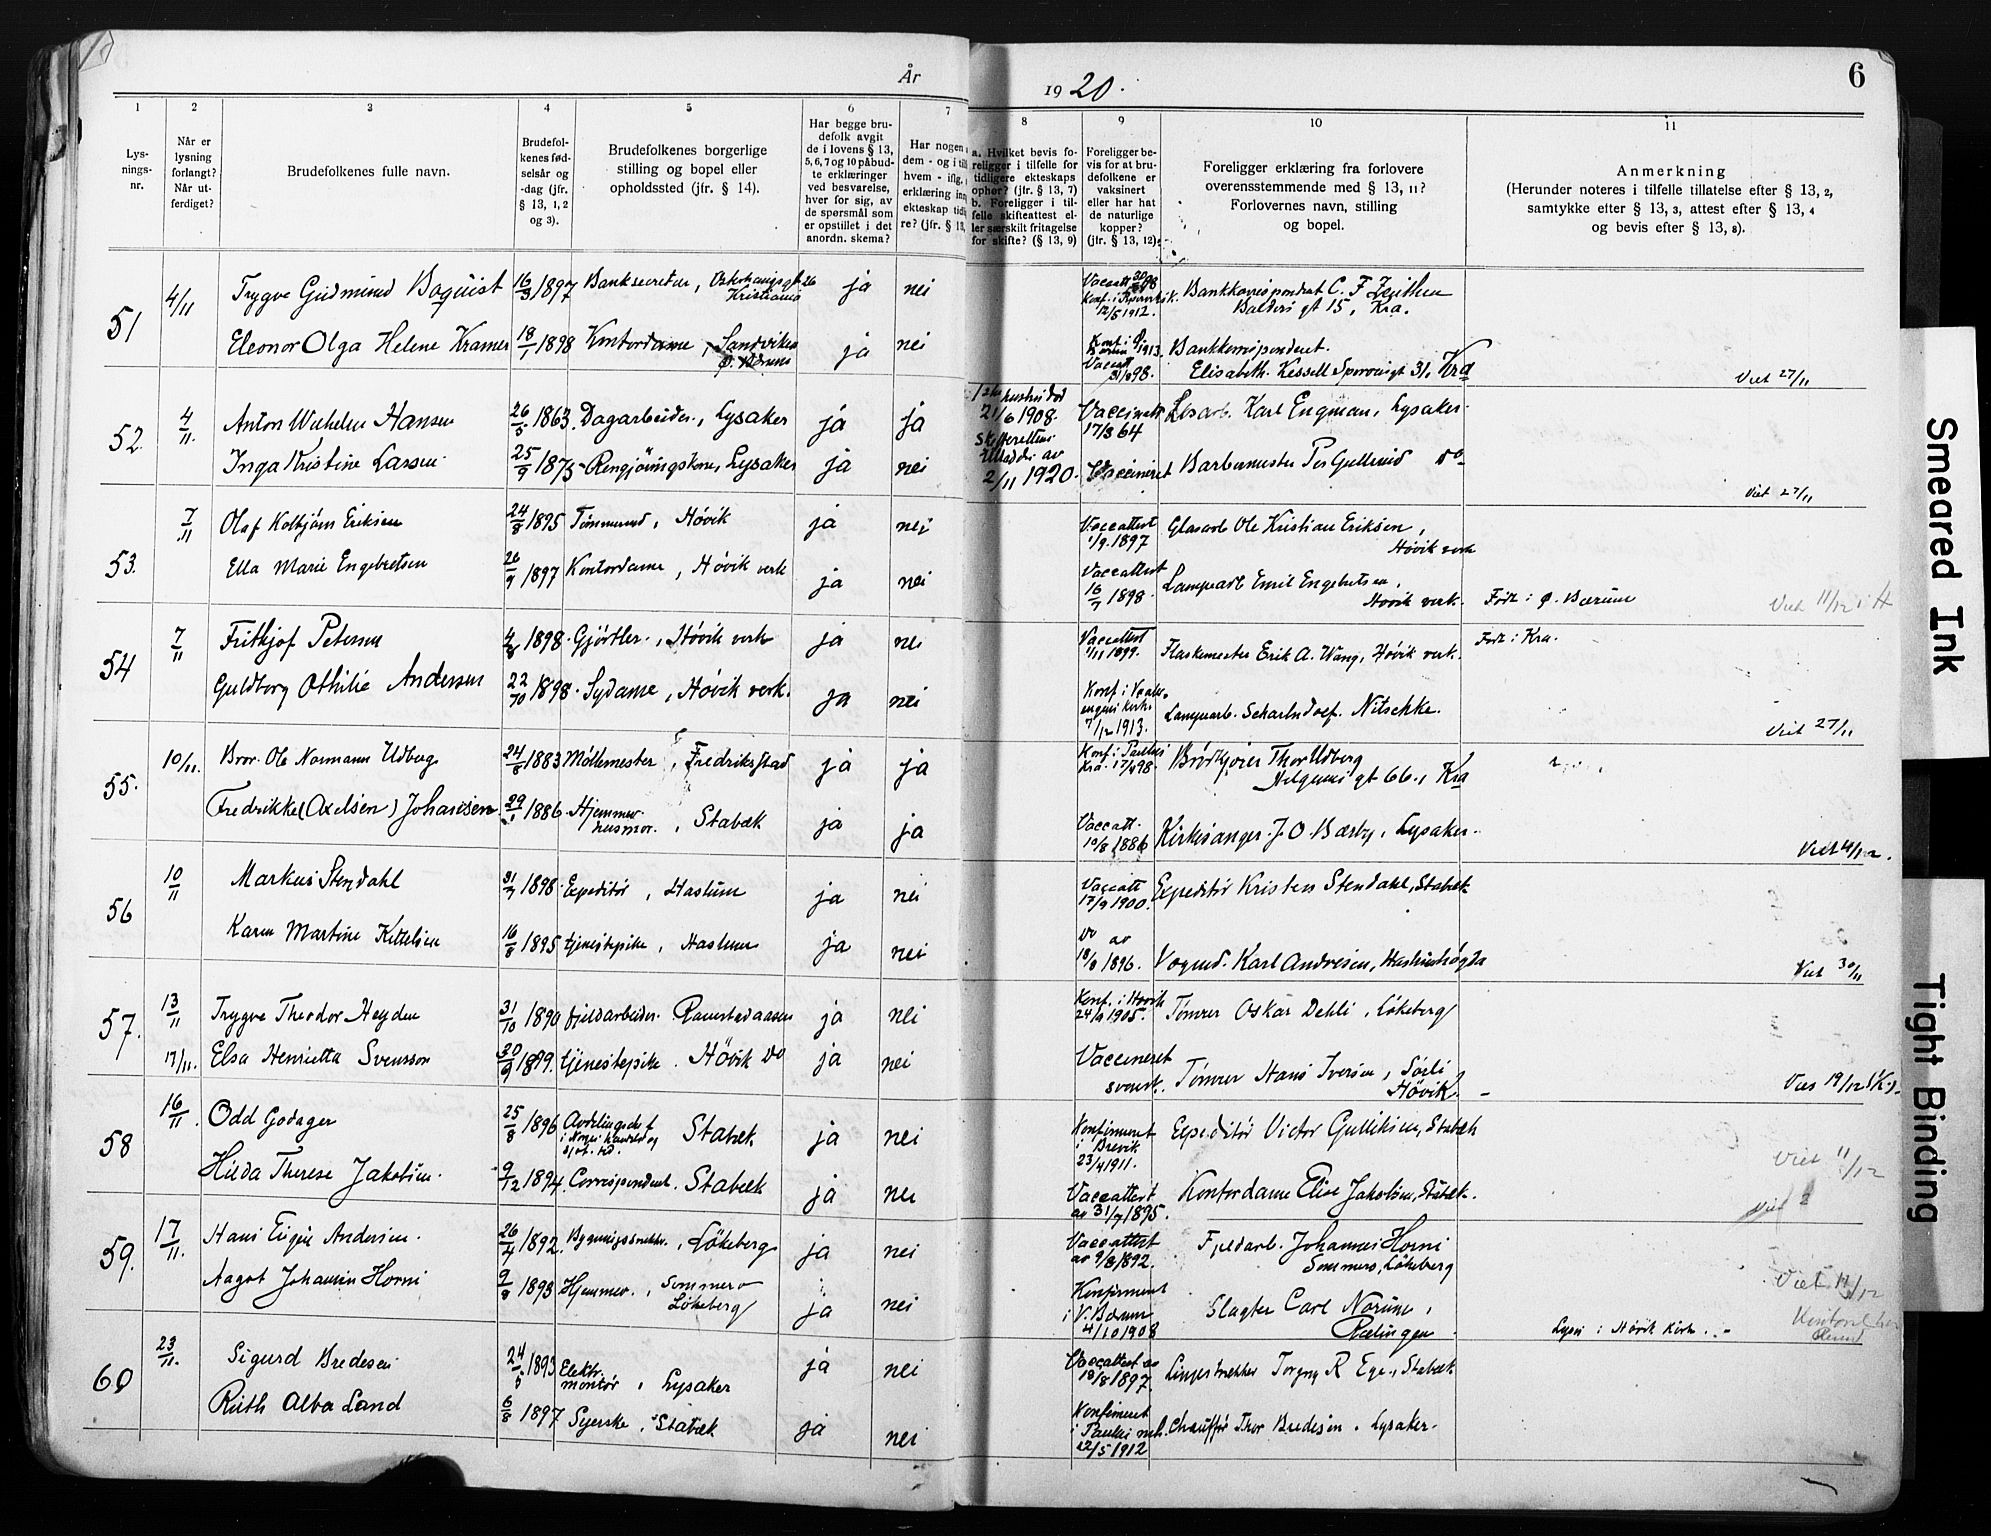 År
19 20.
6
1
2
3
4
5
6
7
8
9
10
11
Lys-
nings-
nr.
Når er
lysning
forlangt?
Når ut-
ferdiget?
Brudefolkenes fulle navn.
Brudefol-
kenes fød-
selsår og
-dag (jfr.
§ 13, 1, 2
og 3).
Brudefolkenes borgerlige
stilling og bopel eller
opholdssted (jfr. § 14).
Har begge bru-
defolk avgit
de i lovens § 13,
5, 6, 7 og 10 påbud-
te erklæringer
ved besvarelse,
hver for sig, av
de spørsmål som
er opstillet i det
anordn. skema?
Har nogen
dem - og i til
hvem - iflg.
erklæring inn
ekteskap tid
re? (jfr. § 13,
a. Hvilket bevis fo-
religger i tilfelle for
tidligere ekteskaps
ophør? (jfr. § 13, 7)
b. Foreligger i til-
felle skifteattest el-
ler særskilt fritagelse
for skifte? (§ 13, 9)
Foreligger be-
vis for at bru-
defolkene er
vaksinert
eller har hat
de naturlige
kopper?
(jfr. § 13, 12).
Foreligger erklæring fra forlovere
overensstemmende med § 13, 11?
Forlovernes navn, stilling
og bopel.
Anmerkning
(Herunder noteres i tilfelle tillatelse efter § 13, 2,
samtykke efter § 13, 3, attest efter § 13, 4
og bevis efter § 13, 8).
51
4/11
Trygve Gudmund Boquist 16/3 1897 Banksecretær, Kristiania ja nei
12/5 1912. Bankkorrespondent C. F. Zeithen
15, Kra.
Eleonor Olga Helene Kramer 18/1 1898 Kontordame, Sandviken ja nei
Ø. Bærum
1913. Bankkorrespondent.
31/8 98. Elisabeth Kessell Sporveisgt 31, Kra
Viet 27/11
52.
4/11.
Anton Wilhelm Hansen 26/5 1863. Dagarbeider., Lysaker ja ja
21/6 1908. Vaccinert
17/8 64
Karl Engman, Lysaker.
Inga Kristine Larsen 25/9 1875 Rengjöringskone, Lysaker ja nei
2/11 1920. Vaccineret Barbermester Per Gullerud do
Viet 27/11
53.
7/11
Olaf Kolbjörn Eriksen 24/8 1895 Tømmermd, Høvik ja nei
Vaccattest
1/9. 1897
Glasarb Ole Kristian Eriksen,
Høvik verk
Ella Marie Engebretsen 26/9 1897 Kontordame, Høvik verk ja nei
Vaccattest
16/7 1898.
Lampearb Emil Engebretsen,
Høvik verk. Født i Ø. Bærum Viet 11/12 i H
54
7/11
Frithjof Petersen 4/8 1898. Gjørtler., Høvik verk ja nei
Vaccattest
1/11 1899.
Flaskemester Erik A. Wang, Høvik verk. Født i Kra.
Guldborg Othilie Andersen 22/10 1898. Sydame, Høvik verk. ja nei
Konf. i Vaaler-
engens kirke
7/12 1913.
Lampearb. Scharlndoef. Nitschke.
Viet 27/11
55.
10/11.
Bror Ole Normann Udberg 24/8 1883 Møllemester, Fredrikstad ja ja
Konf. i Paulus
Kra. 17/4 98.
Brødkjører Thor Udberg
Helgesens gt 66., Kra
Fredrikke (Axelsen) Johansen 29/1 1886. Hjemmev. ja ja
husmor., Stabæk
Vaccatt.
10/8 1886
Kirkesanger J. O. Bærby, Lysaker.
56
10/11
Markus Stendahl 31/7 1898. Expeditør, Haslum ja nei
Vaccatt
17/9 1900.
Expeditør Kristen Stendahl, Stabæk
Karen Martine Kittelsen 16/8 1895 tjenestepike, Haslum ja nei
do av
18/8 1896.
Vognmd. Karl Andresen, Haslumhøgda
Viet 30/11
57.
13/11
Trygve Theodor Heyden 31/10 1890 fjeldarbeider. ja nei
Konf. i Høvik
24/9 1905.
Tømrer Oskar Dehli, Løkeberg
17/11.
Elsa Henrietta Svensson 30/9 1899. tjenestepike. Høvik Vo ja nei
Vaccineret
svensk.
Tømrer Hans Iversen, Sørli
Høvik.
58
16/11.
Odd Godager 25/8 1896 Avdelingschef Stabæk ja nei
Konfirmeret
i Brevik
23/4 1911.
Expeditör Victor Gulliksen, Stabæk
Viet 11/12
Hilda Therese Jakobsen. 9/12 1894. Correspondent. Stabæk ja nei
Vaccattest
av 31/7 1895.
Kontordame Elise Jakobsen, Stabæk.
59.
17/11.
Hans Eigil Andersen. 26/4 1892. Løkeberg ja nei
Vaccattest
av 9/8 1892.
Fjeldarb. Johannes Horni
Sommero, Løkeberg
Aagot Johansen Horni 9/8 1893 Hjemmev., Sommero ja nei
Løkeberg
Konfirmeret
i V. Bærum
4/10 1908
Slagter Carl Norum,
Rælingen
Viet 11/12
Lyses i Høvik Kirke
60
23/11.
Sigurd Bredesen 24/5 1893 Elektr.
montør, Lysaker ja nei
Vaccattest av
18/8 1897.
Linjestrekker Torgny R Ege, Stabæk
Ruth Alba Land 6/8 1897 Syerske, Stabæk ja nei
Konfirmeret
i Paulus
12/5 1912
Chauffør Thor Bredesen, Lysaker.
Smeared Ink
Tight Binding